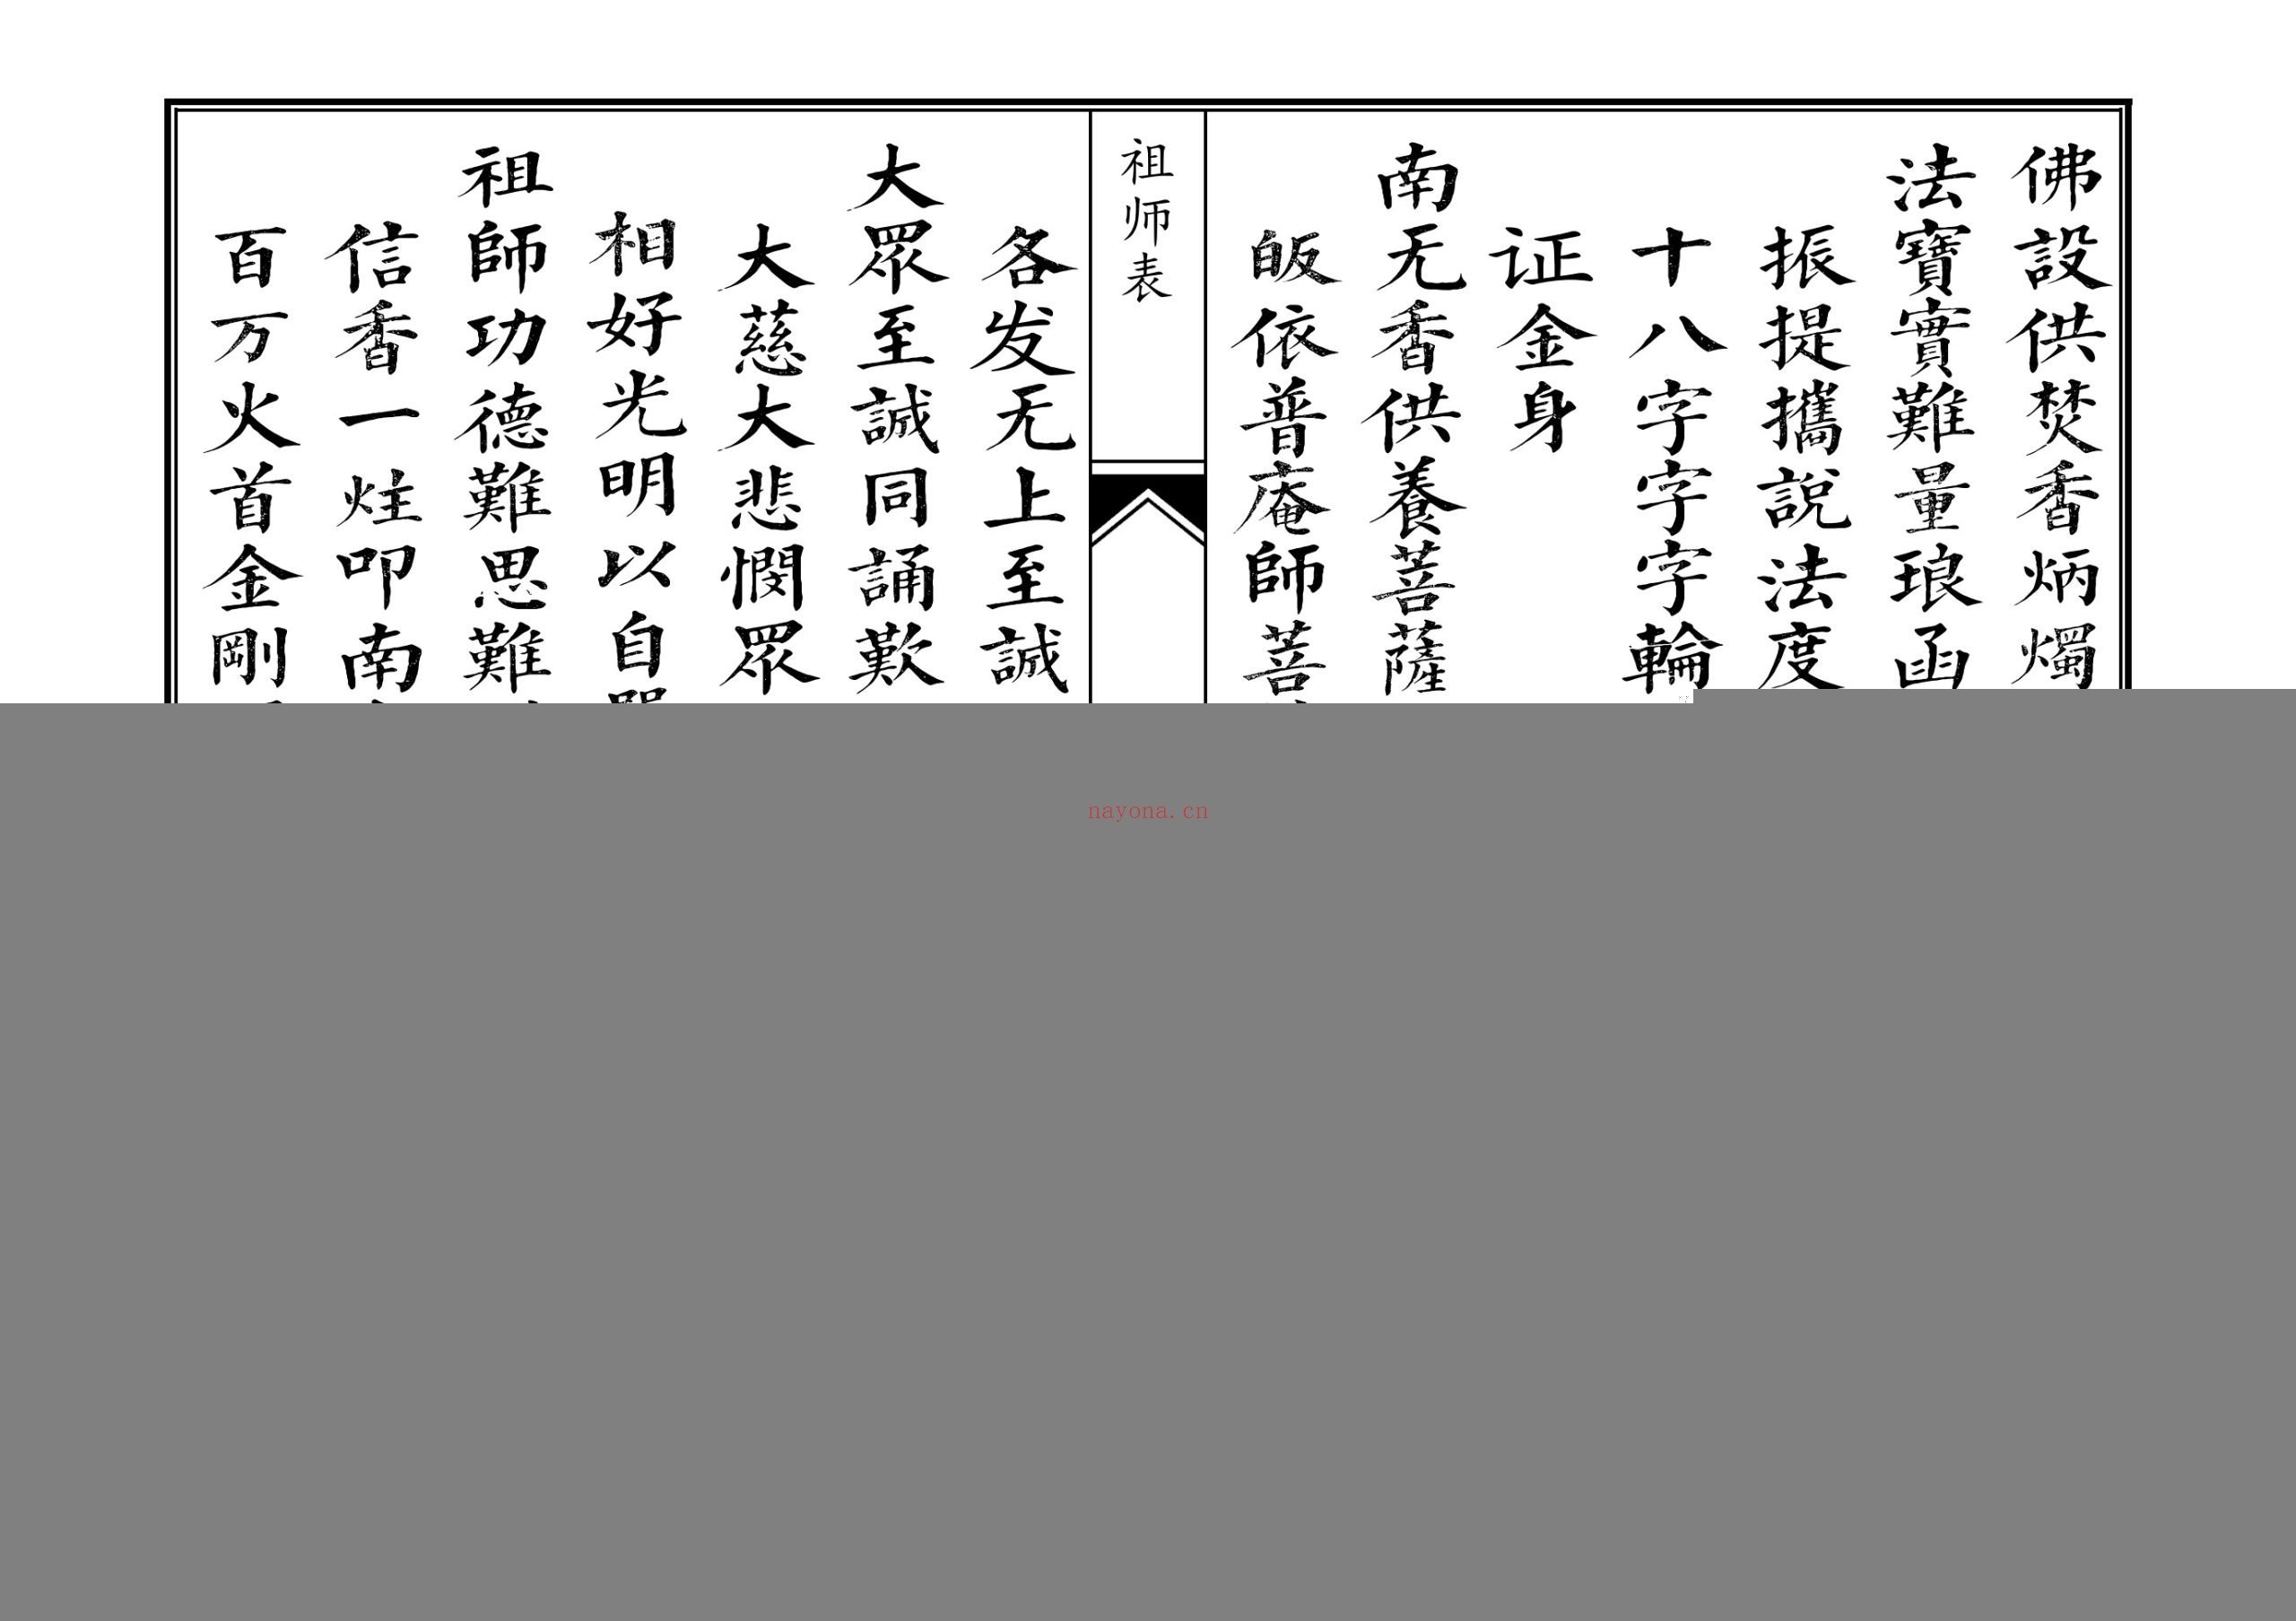 佛設供焚香炳燭
法寶實難量琅函
振提攜説法度
十八字字字輪
证金身
南无香供養菩薩
皈依普庵師菩
祖师表
各发无上至誠
大眾至誠同誦歎
大慈大悲憫眾
相好光明以自
祖師功德難思難
信香一炷叩南
百万火首金剛
nayona.cn